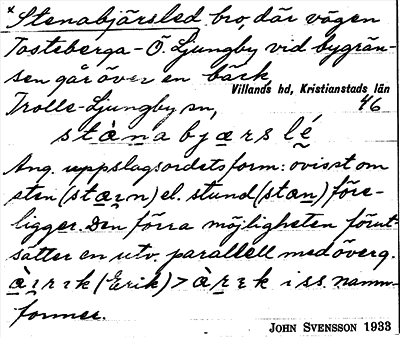 * Stenabjärsled bro, där vägen
Tosteberga - Ö. Ljungby vid bygrän-
sen går över en bäck,
Villands hd, Kristianstads län
Trolle-Ljungby sn, 46
stànabjærslé
Ang. uppslagsordets form: ovisst om
sten (stæın) el. stund (stæn) före-
ligger. Den förra möjligheten förut-
sätter en utv. parallell med överg.
æ̀ırık (Erik) > æ̀rık i ss. namn-
former.
JOHN SVENSSON 1933